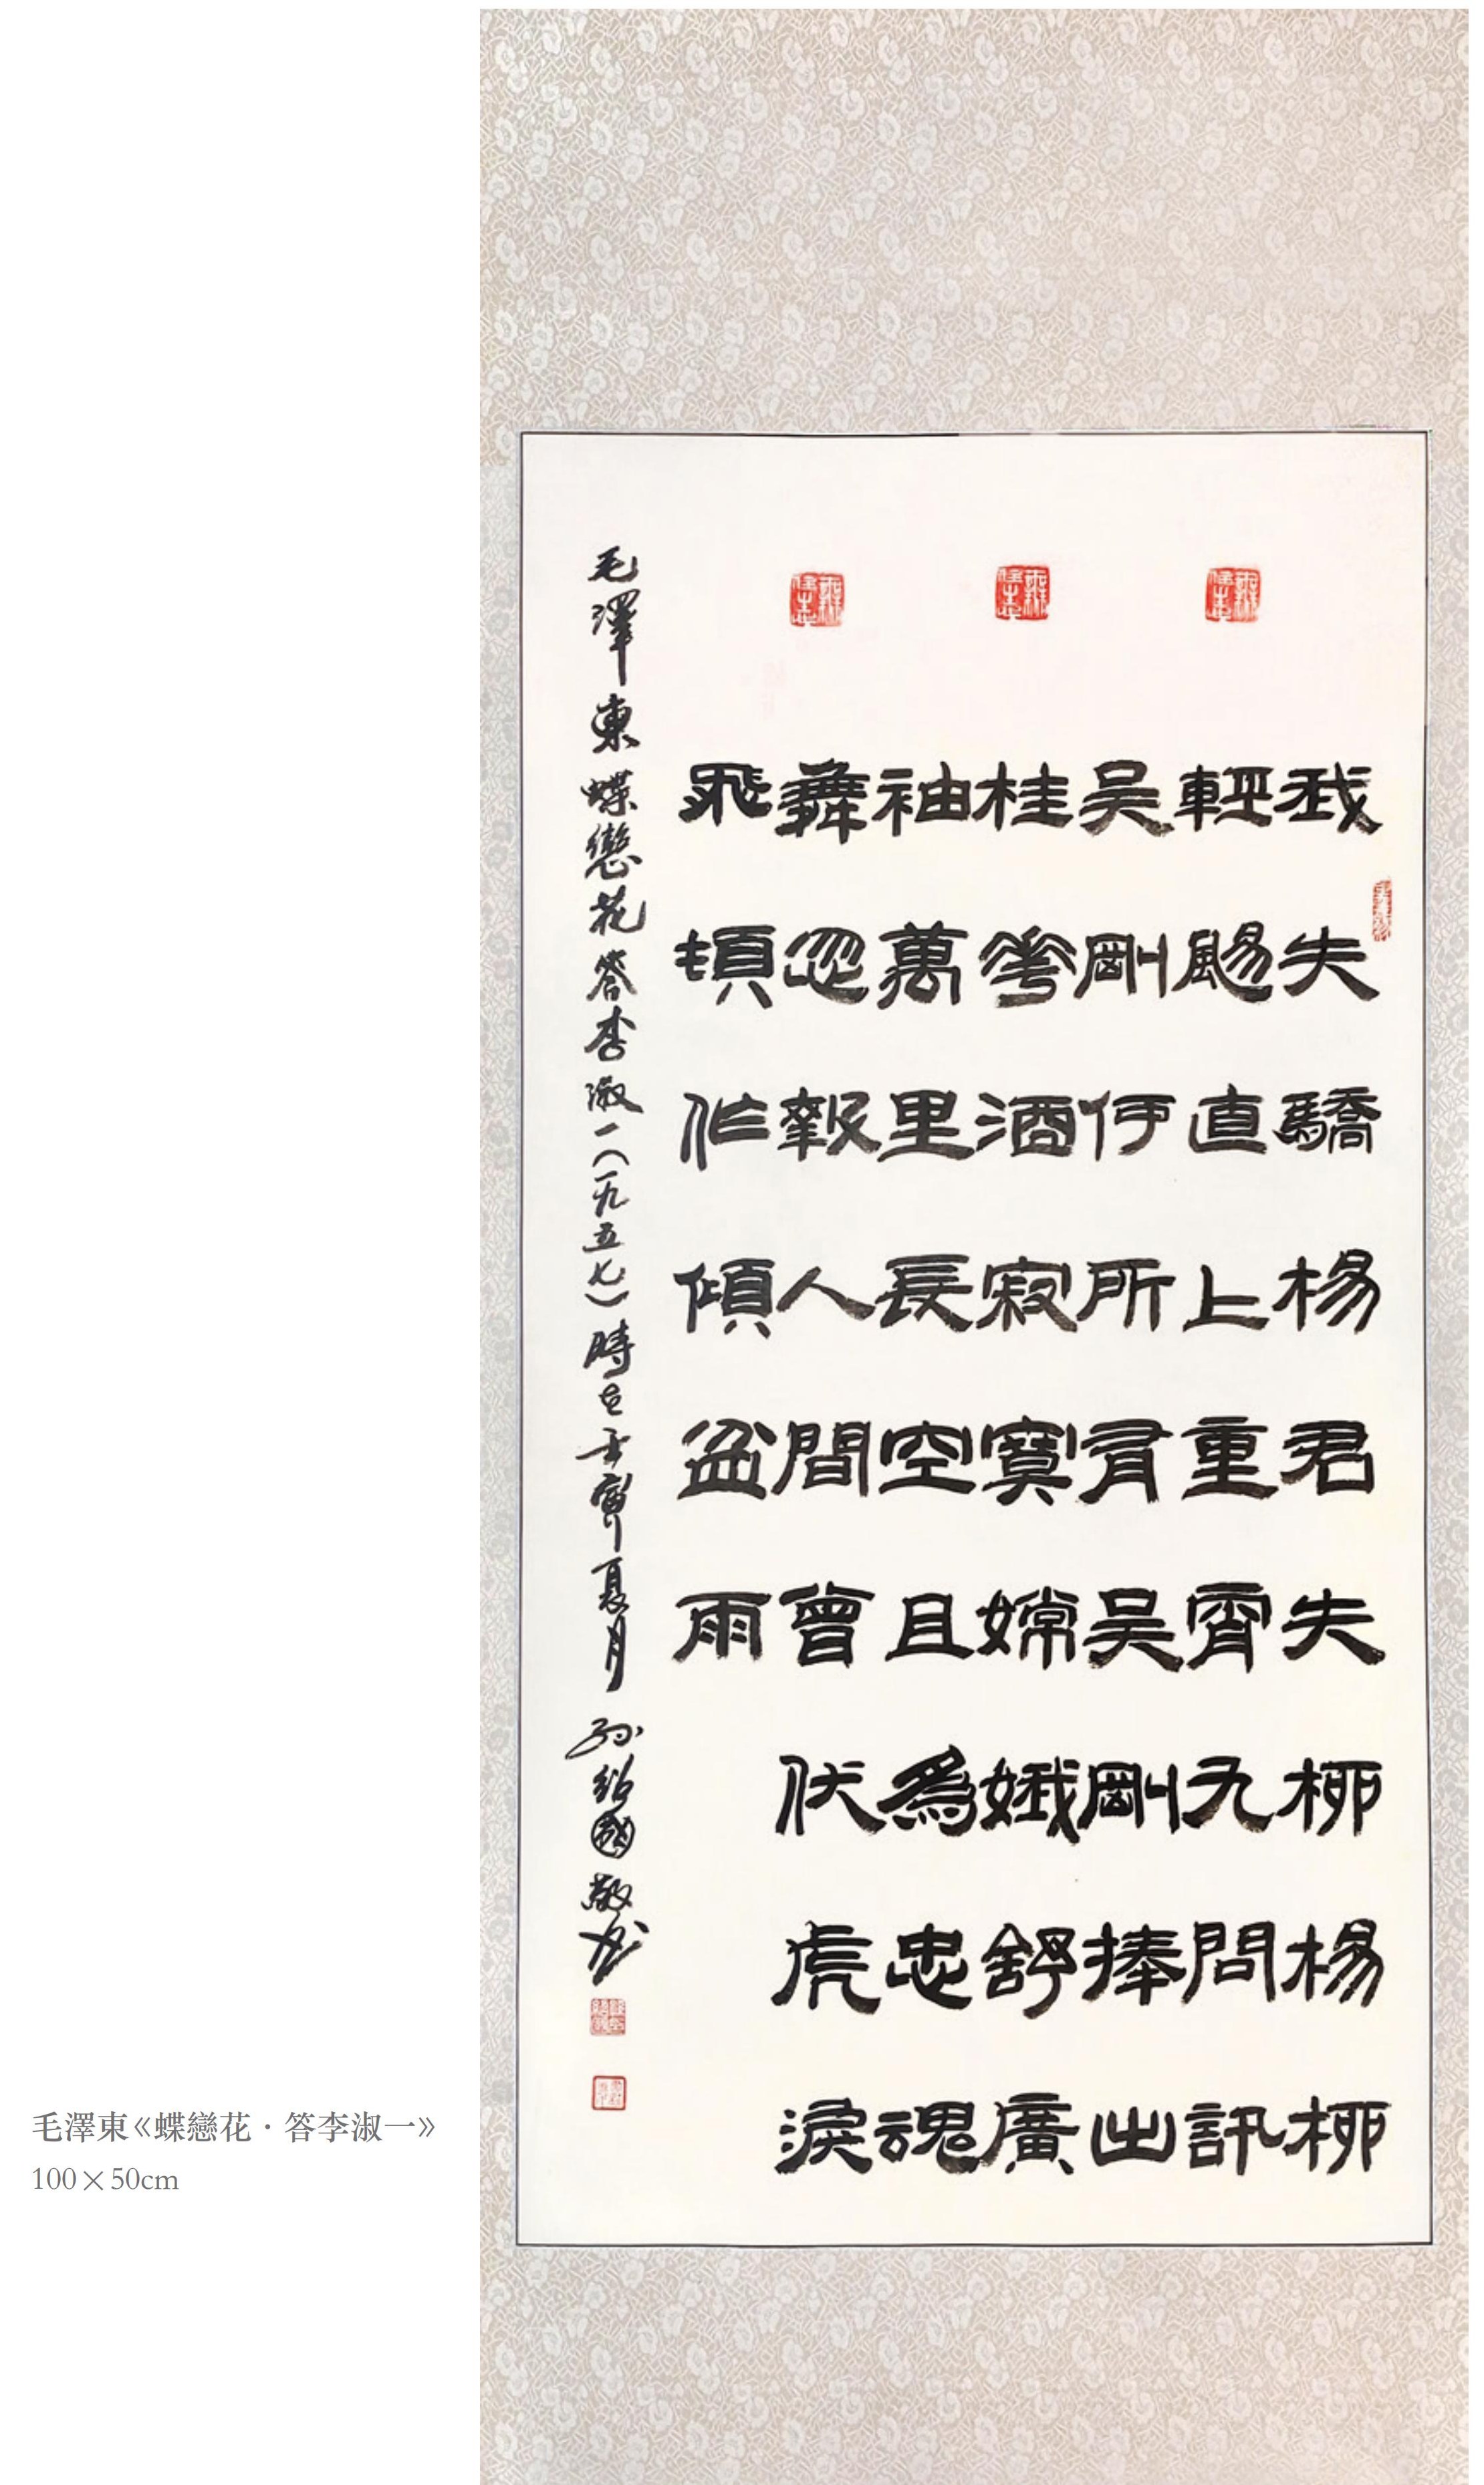 我失驕楊君失柳楊柳
輕颺直上重霄九問訊
吴剛何所有吴剛捧出
桂華酒寂寞嫦娥舒廣
袖萬里長空且為忠魂
舞忽報人間曾伏虎淚
飛頓作傾盆雨
毛澤東蝶戀花答李淑一（一九五七）時在壬寅夏月 孫紹國敬書
毛澤東《蝶戀花·答李淑一》
100×50cm